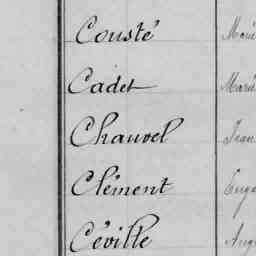 Cousté
Cadet
Chauvel
Clément
Céville